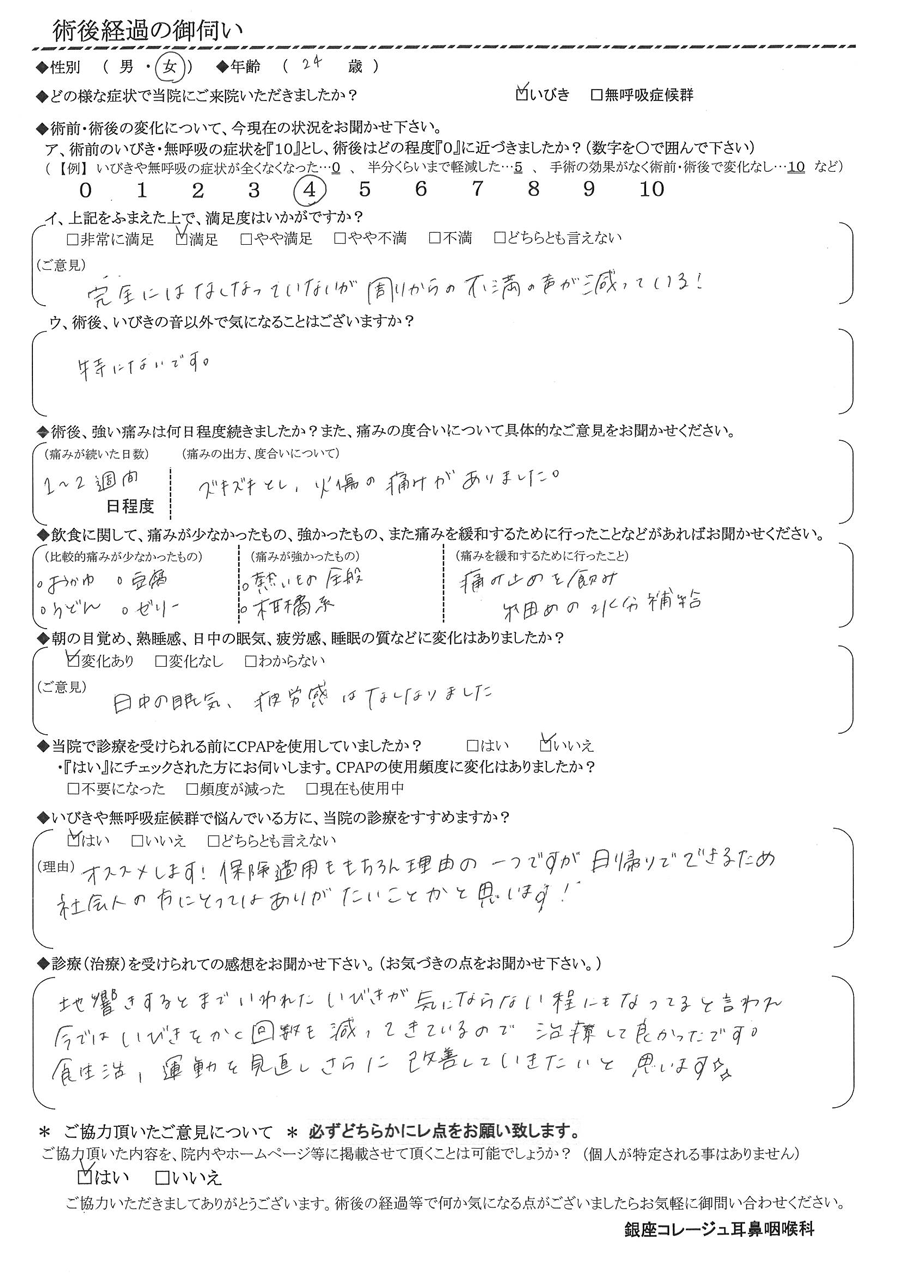 術後経過の御伺い
◆性別 （ 男 ・ 女 ） ◆年齢 （ 24 歳 ）
◆どの様な症状で当院にご来院いただきましたか？ ☑いびき □無呼吸症候群
◆術前・術後の変化について、今現在の状況をお聞かせ下さい。
ア、術前のいびき・無呼吸の症状を『10』とし、術後はどの程度『0』に近づきましたか？（数字を○で囲んで下さい）
（【例】 いびきや無呼吸の症状が全くなくなった…0 、 半分くらいまで軽減した…5 、 手術の効果がなく術前・術後で変化なし…10 など）
0 1 2 3 4 5 6 7 8 9 10
イ、上記をふまえた上で、満足度はいかがですか？
□非常に満足 ☑満足 □やや満足 □やや不満 □不満 □どちらとも言えない
（ご意見）
完全にはなくなっていないが 周りからの不満の声が減っている！
ウ、術後、いびきの音以外で気になることはございますか？
特にないです。
◆術後、強い痛みは何日程度続きましたか？また、痛みの度合いについて具体的なご意見をお聞かせください。
（痛みが続いた日数） （痛みの出方、度合いについて）
1～2週間 ズキズキとし、火傷の痛みがありました。
日程度
◆飲食に関して、痛みが少なかったもの、強かったもの、また痛みを緩和するために行ったことなどがあればお聞かせください。
（比較的痛みが少なかったもの） （痛みが強かったもの） （痛みを緩和するために行ったこと）
○おかゆ ○豆腐 ○熱いもの全般 痛み止めを飲み
○うどん ○ゼリー ○柑橘系 氷固めの水分補給
◆朝の目覚め、熟睡感、日中の眠気、疲労感、睡眠の質などに変化はありましたか？
☑変化あり □変化なし □わからない
（ご意見）
日中の眠気、疲労感はなくなりました
◆当院で診療を受けられる前にCPAPを使用していましたか？ □はい ☑いいえ
・『はい』にチェックされた方にお伺いします。CPAPの使用頻度に変化はありましたか？
□不要になった □頻度が減った □現在も使用中
◆いびきや無呼吸症候群で悩んでいる方に、当院の診療をすすめますか？
☑はい □いいえ □どちらとも言えない
（理由） オススメします！保険適用ももちろん理由の一つですが 日帰りでできるため
社会人の方にとってはありがたいことかと思います！
◆診療（治療）を受けられての感想をお聞かせ下さい。（お気づきの点をお聞かせ下さい。）
地響きするとまでいわれたいびきが 気にならない程にもなってると言われ
今ではいびきをかく回数も減ってきているので 治療して良かったです。
食生活、運動を見直しさらに 改善していきたいと 思います☆☆
＊ ご協力頂いたご意見について ＊ 必ずどちらかにレ点をお願い致します。
ご協力頂いた内容を、院内やホームページ等に掲載させて頂くことは可能でしょうか？ （個人が特定される事はありません）
☑はい □いいえ
ご協力いただきましてありがとうございます。術後の経過等で何か気になる点がございましたらお気軽に御問い合わせください。
銀座コレージュ耳鼻咽喉科